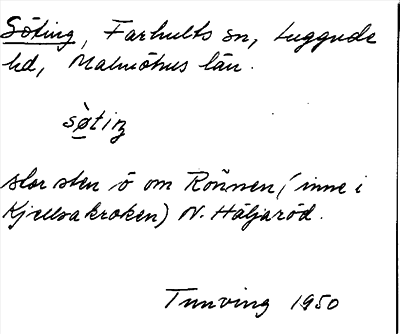 Söting, Farhults sn, Luggude
hd, Malmöhus län.
sø̀tiŋ
stor sten ö om Rönnen, (inne i
Kjellsakroken) N. Häljaröd.
Tunving 1950